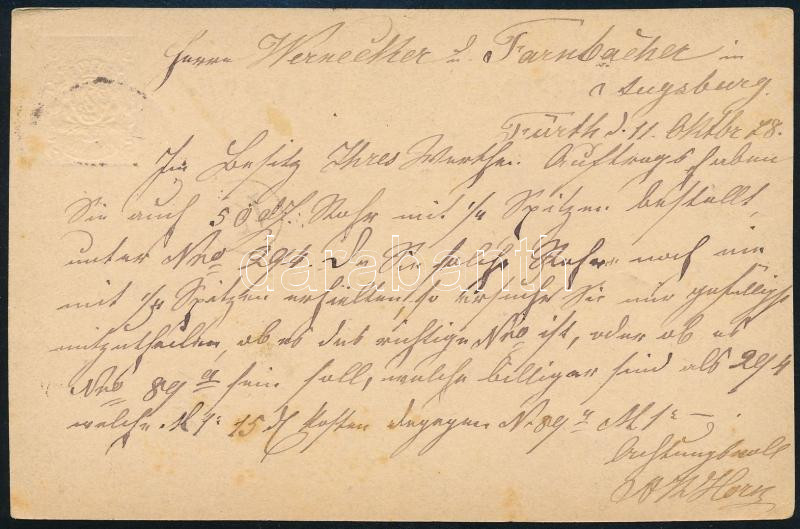 Herrn Wernecker & Farnbacher in
Augsburg.
Fürth d. 11. Oktbr 78.
Im Besitz Ihres Werthen Auftrags haben
Sie auch 50 dz. Rohr mit 1/4 Spitzen bestellt,
unter Nro 294. Da Sie solche Rohre noch nie
mit 1/4 Spitzen erhielten, so ersuche Sie mir gefälligst
mitzutheilen, ob es das richtige Nro ist, oder ob es
Nro 89 a sein soll, welche billiger sind als 294
welche M 1. 15 d kosten dagegen No 89 a M 1. –
Achtungsvoll
Horn
darabanth